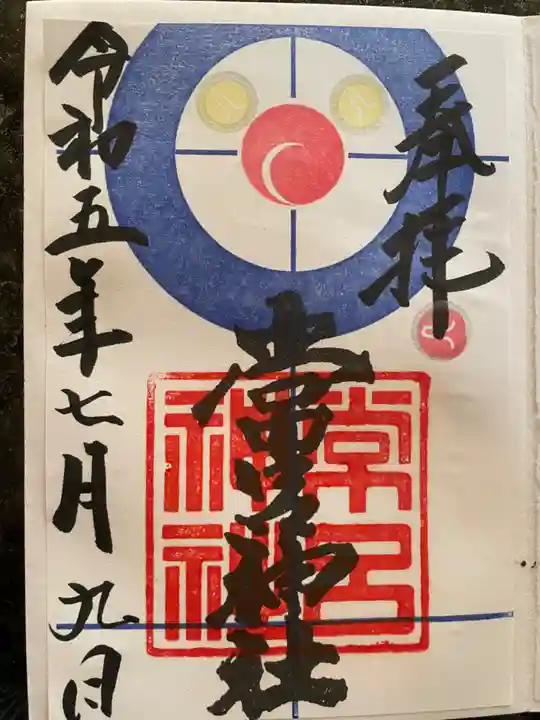 奉拝
常呂神社
令和五年七月九日
常呂
神社